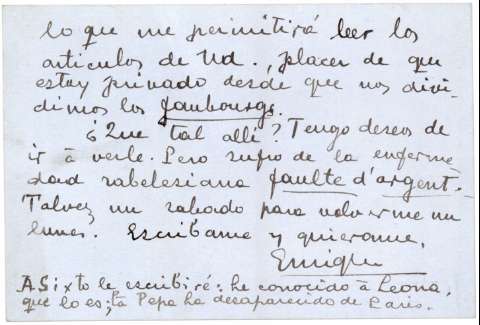 lo que me permitirá leer los
articulos de Ud., placer de que
estoy privado desde que nos divi-
dimos los faubourgs.
¿Que tal allí? Tengo deseos de
ir á verle. Pero sufro de la enferme
dad rabelesiana faulte d'argent.
Talvez un sabado para volverme un
lunes. Escribame y quierame,
Enrique
A Sixto le escribiré: he conocido á Leona,
que lo es; ta Pepa ha desaparecido de Paris.